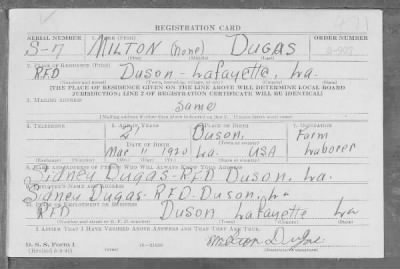 REGISTRATION CARD
SERIAL NUMBER 1. NAME (Print) ORDER NUMBER
S-7 MILTON (none) DUGAS
(First) (Middle) (Last)
2. PLACE OF RESIDENCE (Print)
RFD Duson - Lafayette, La.
[THE PLACE OF RESIDENCE GIVEN ON THE LINE ABOVE WILL DETERMINE LOCAL BOARD
JURISDICTION; LINE 2 OF REGISTRATION CERTIFICATE WILL BE IDENTICAL]
3. MAILING ADDRESS
Same
[Mailing address if other than place indicated on line 2. If same insert word same]
4. TELEPHONE 5. AGE IN YEARS 6. PLACE OF BIRTH 7. OCCUPATION
21 Duson, Farm
DATE OF BIRTH
Mar 11 1920 La. USA Laborer
(Exchange) (Number) (Mo.) (Day) (Yr.) (State or country)
8. NAME AND ADDRESS OF PERSON WHO WILL ALWAYS KNOW YOUR ADDRESS
Sidney Dugas - RFD Duson, La.
9. EMPLOYER'S NAME AND ADDRESS
Sidney Dugas - RFD - Duson, La
10. PLACE OF EMPLOYMENT OR BUSINESS
RFD Duson Lafayette La
(Number and street or R. F. D. number) (Town) (County) (State)
I AFFIRM THAT I HAVE VERIFIED ABOVE ANSWERS AND THAT THEY ARE TRUE.
D. S. S. Form 1